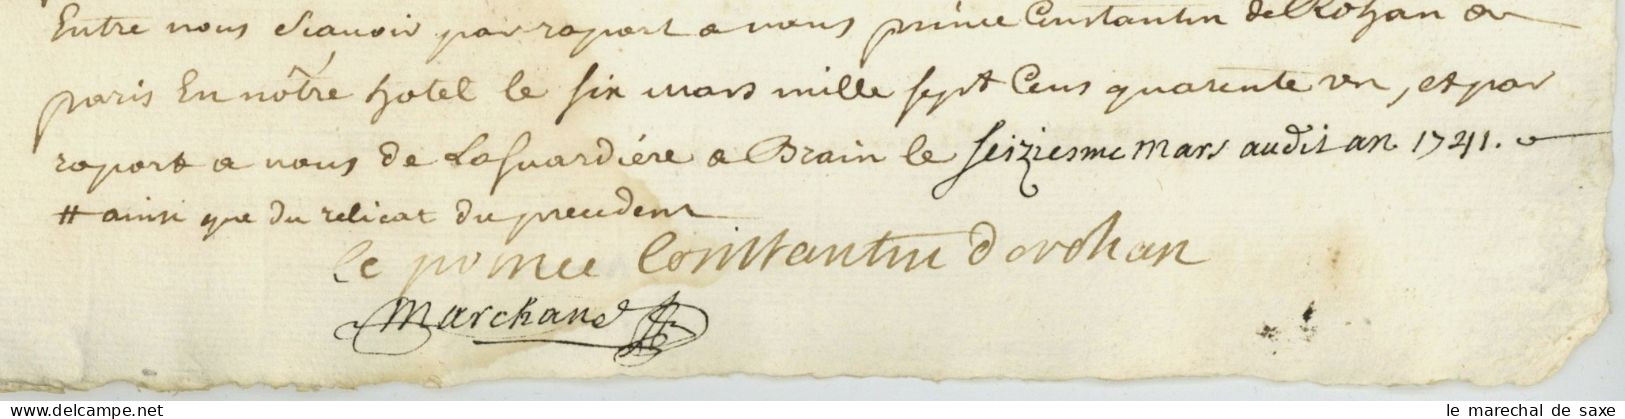 Entre nous scavoir par raport a nous prince Constantin de Rohan a
paris En nôtre hotel le six mars mille sept Cens quarente un, et par
raport a nous de LaGuardiére a Brain le seiziesme mars audit an 1741.
# ainsi que du relicat du precedent
le prince Consttantin de rohan
Marchand
www.delcampe.net
le marechal de saxe